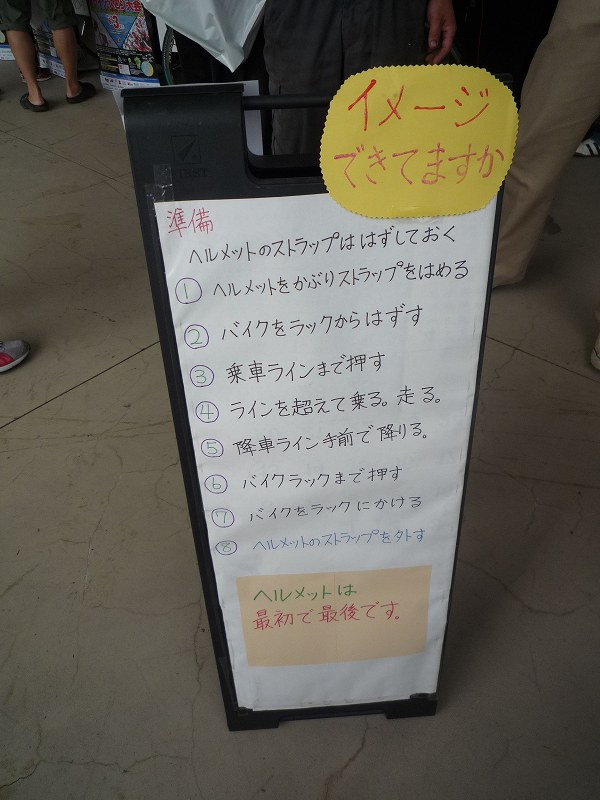 イメージ
できてますか
準備
ヘルメットのストラップは はずしておく
① ヘルメットをかぶりストラップをはめる
② バイクをラックからはずす
③ 乗車ラインまで押す
④ ラインを超えて乗る。走る。
⑤ 降車ライン手前で降りる。
⑥ バイクラックまで押す
⑦ バイクをラックにかける
⑧ ヘルメットのストラップを外す
ヘルメットは
最初で最後です。